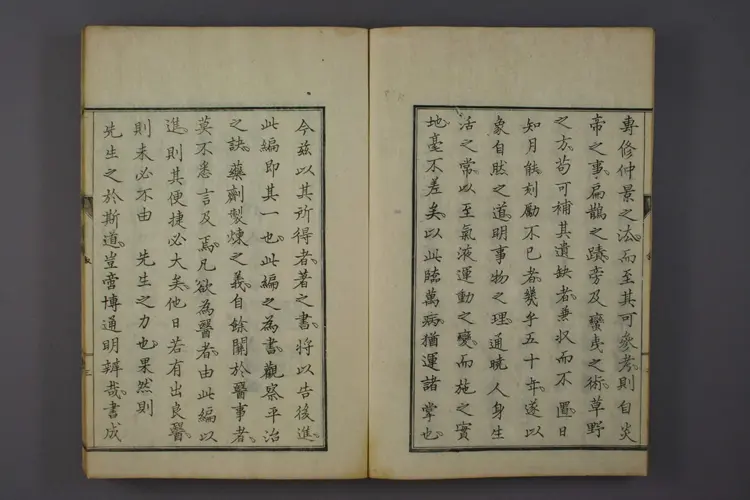 專修仲景之法而至其可參考則自炎
帝之事扁鵲之蹟旁及蠻戎之術草野
之方苟可補其遺缺者兼收而不置日
知月能刻勵不已者幾乎五十年遂以
象自然之道明事物之理通曉人身生
活之常以至氣液運動之變而施之實
地毫不差矣以此臨萬病猶運諸掌也
今茲以其所得者著之書將以告後進
此編即其一也此編之為書觀察平治
之訣藥劑製煉之義自餘關於醫事者
莫不悉言及焉凡欲為醫者由此編以
進則其便捷必大矣他日若有出良醫
則未必不由 先生之力也果然則
先生之於斯道豈啻博通明辨哉書成
三